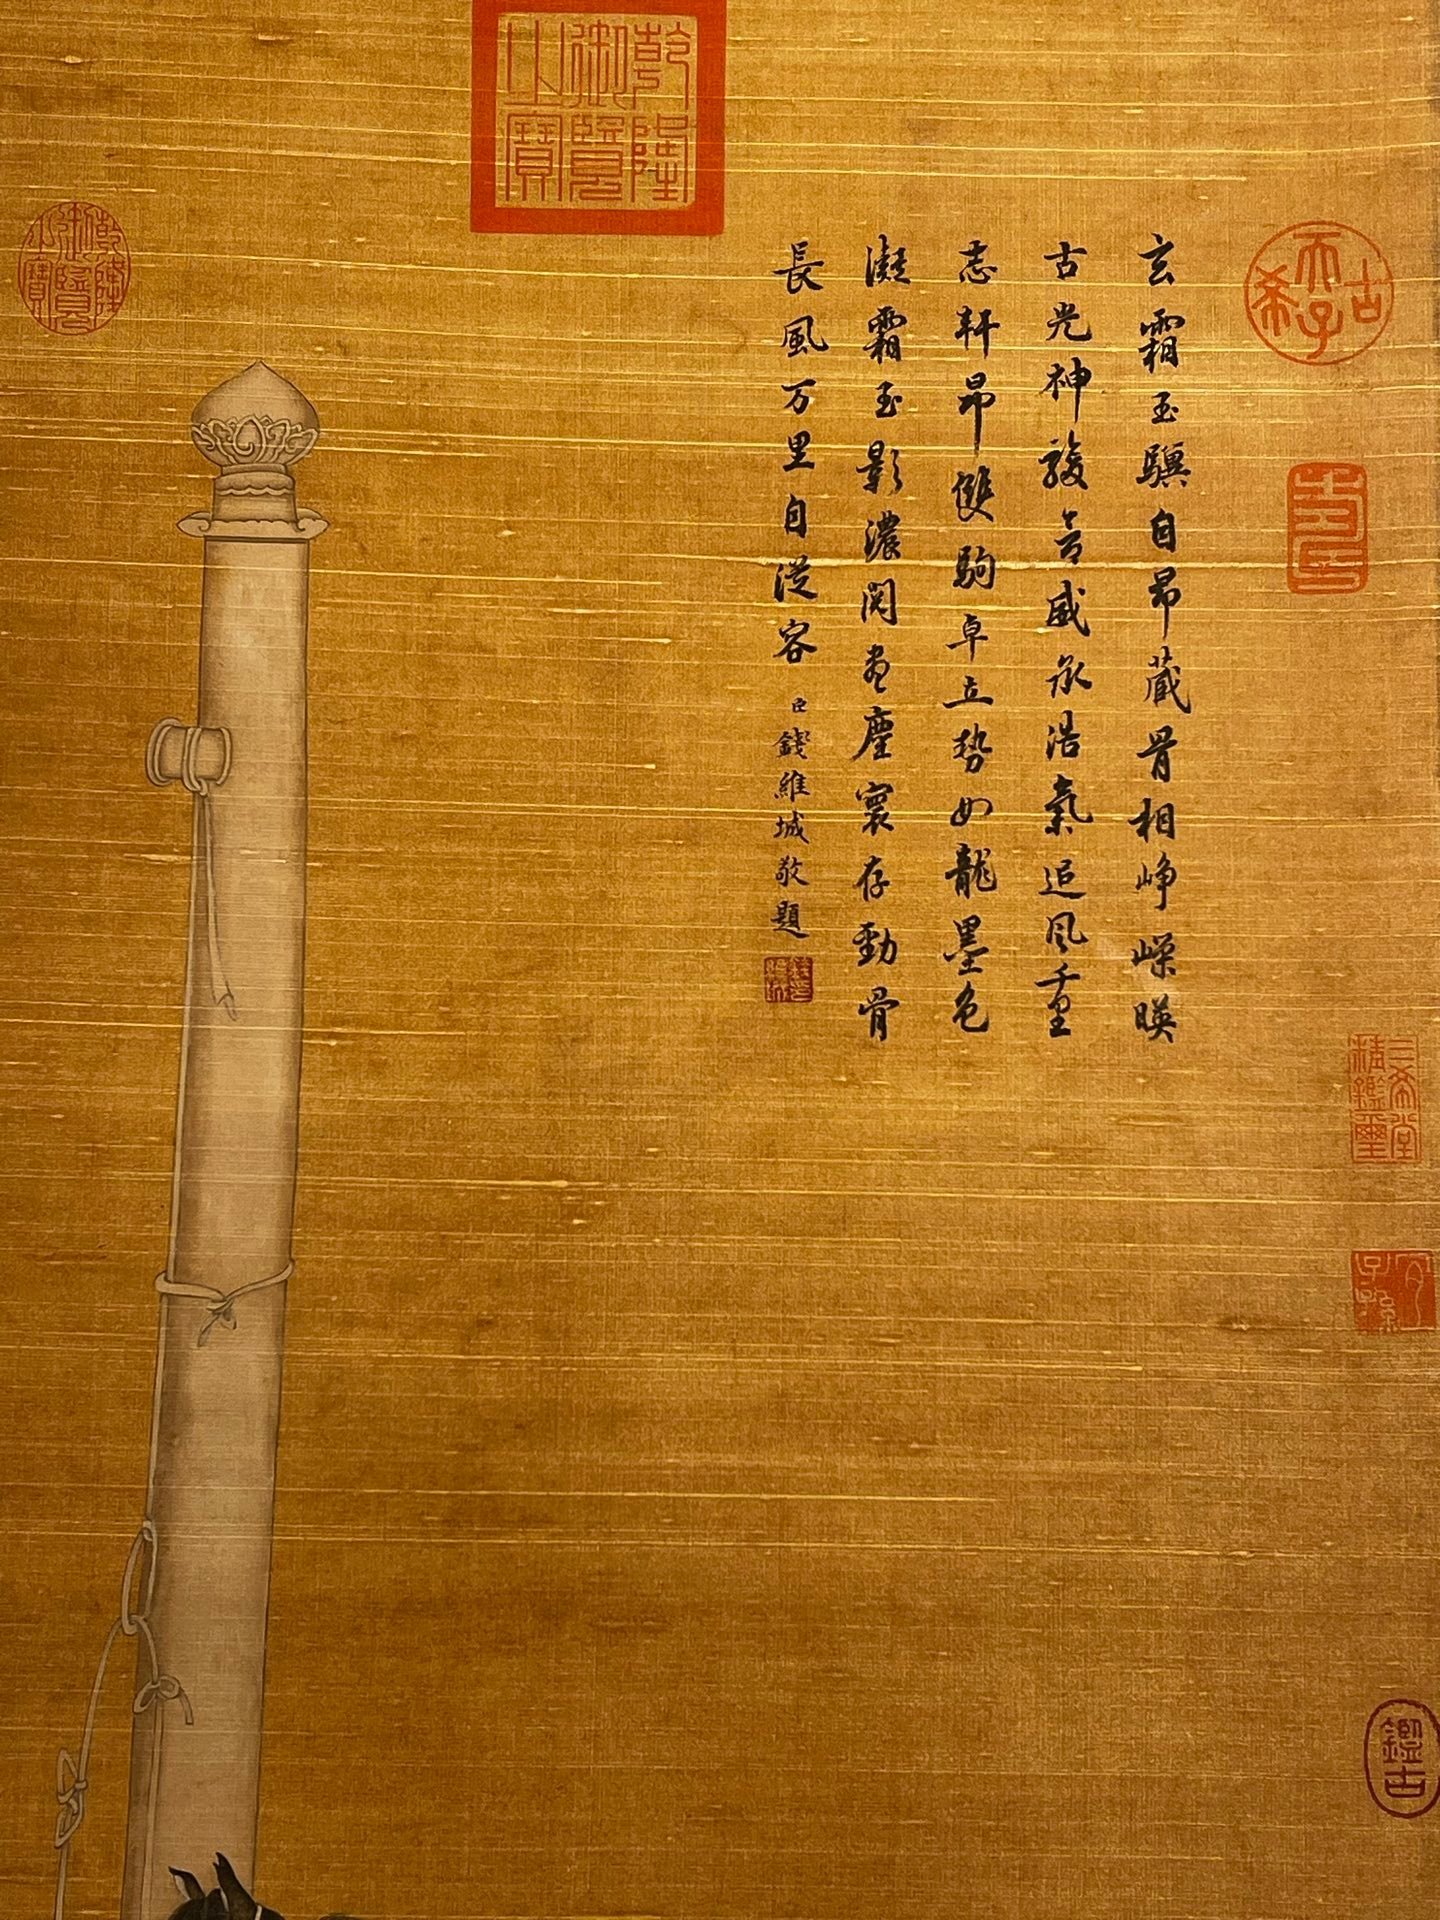 乾隆御覽之寶
古希天子
壽
玄霜玉驥自昂藏骨相崢嶸暎
古光神駿含威承浩氣追风千里
志軒昂雙駒卓立势如龍墨色
凝霜玉影濃閱盡塵寰存勁骨
長風万里自從容
臣錢維城敬題
乾隆御覽之寶
三希堂精鑑璽
宜子孫
鑑古